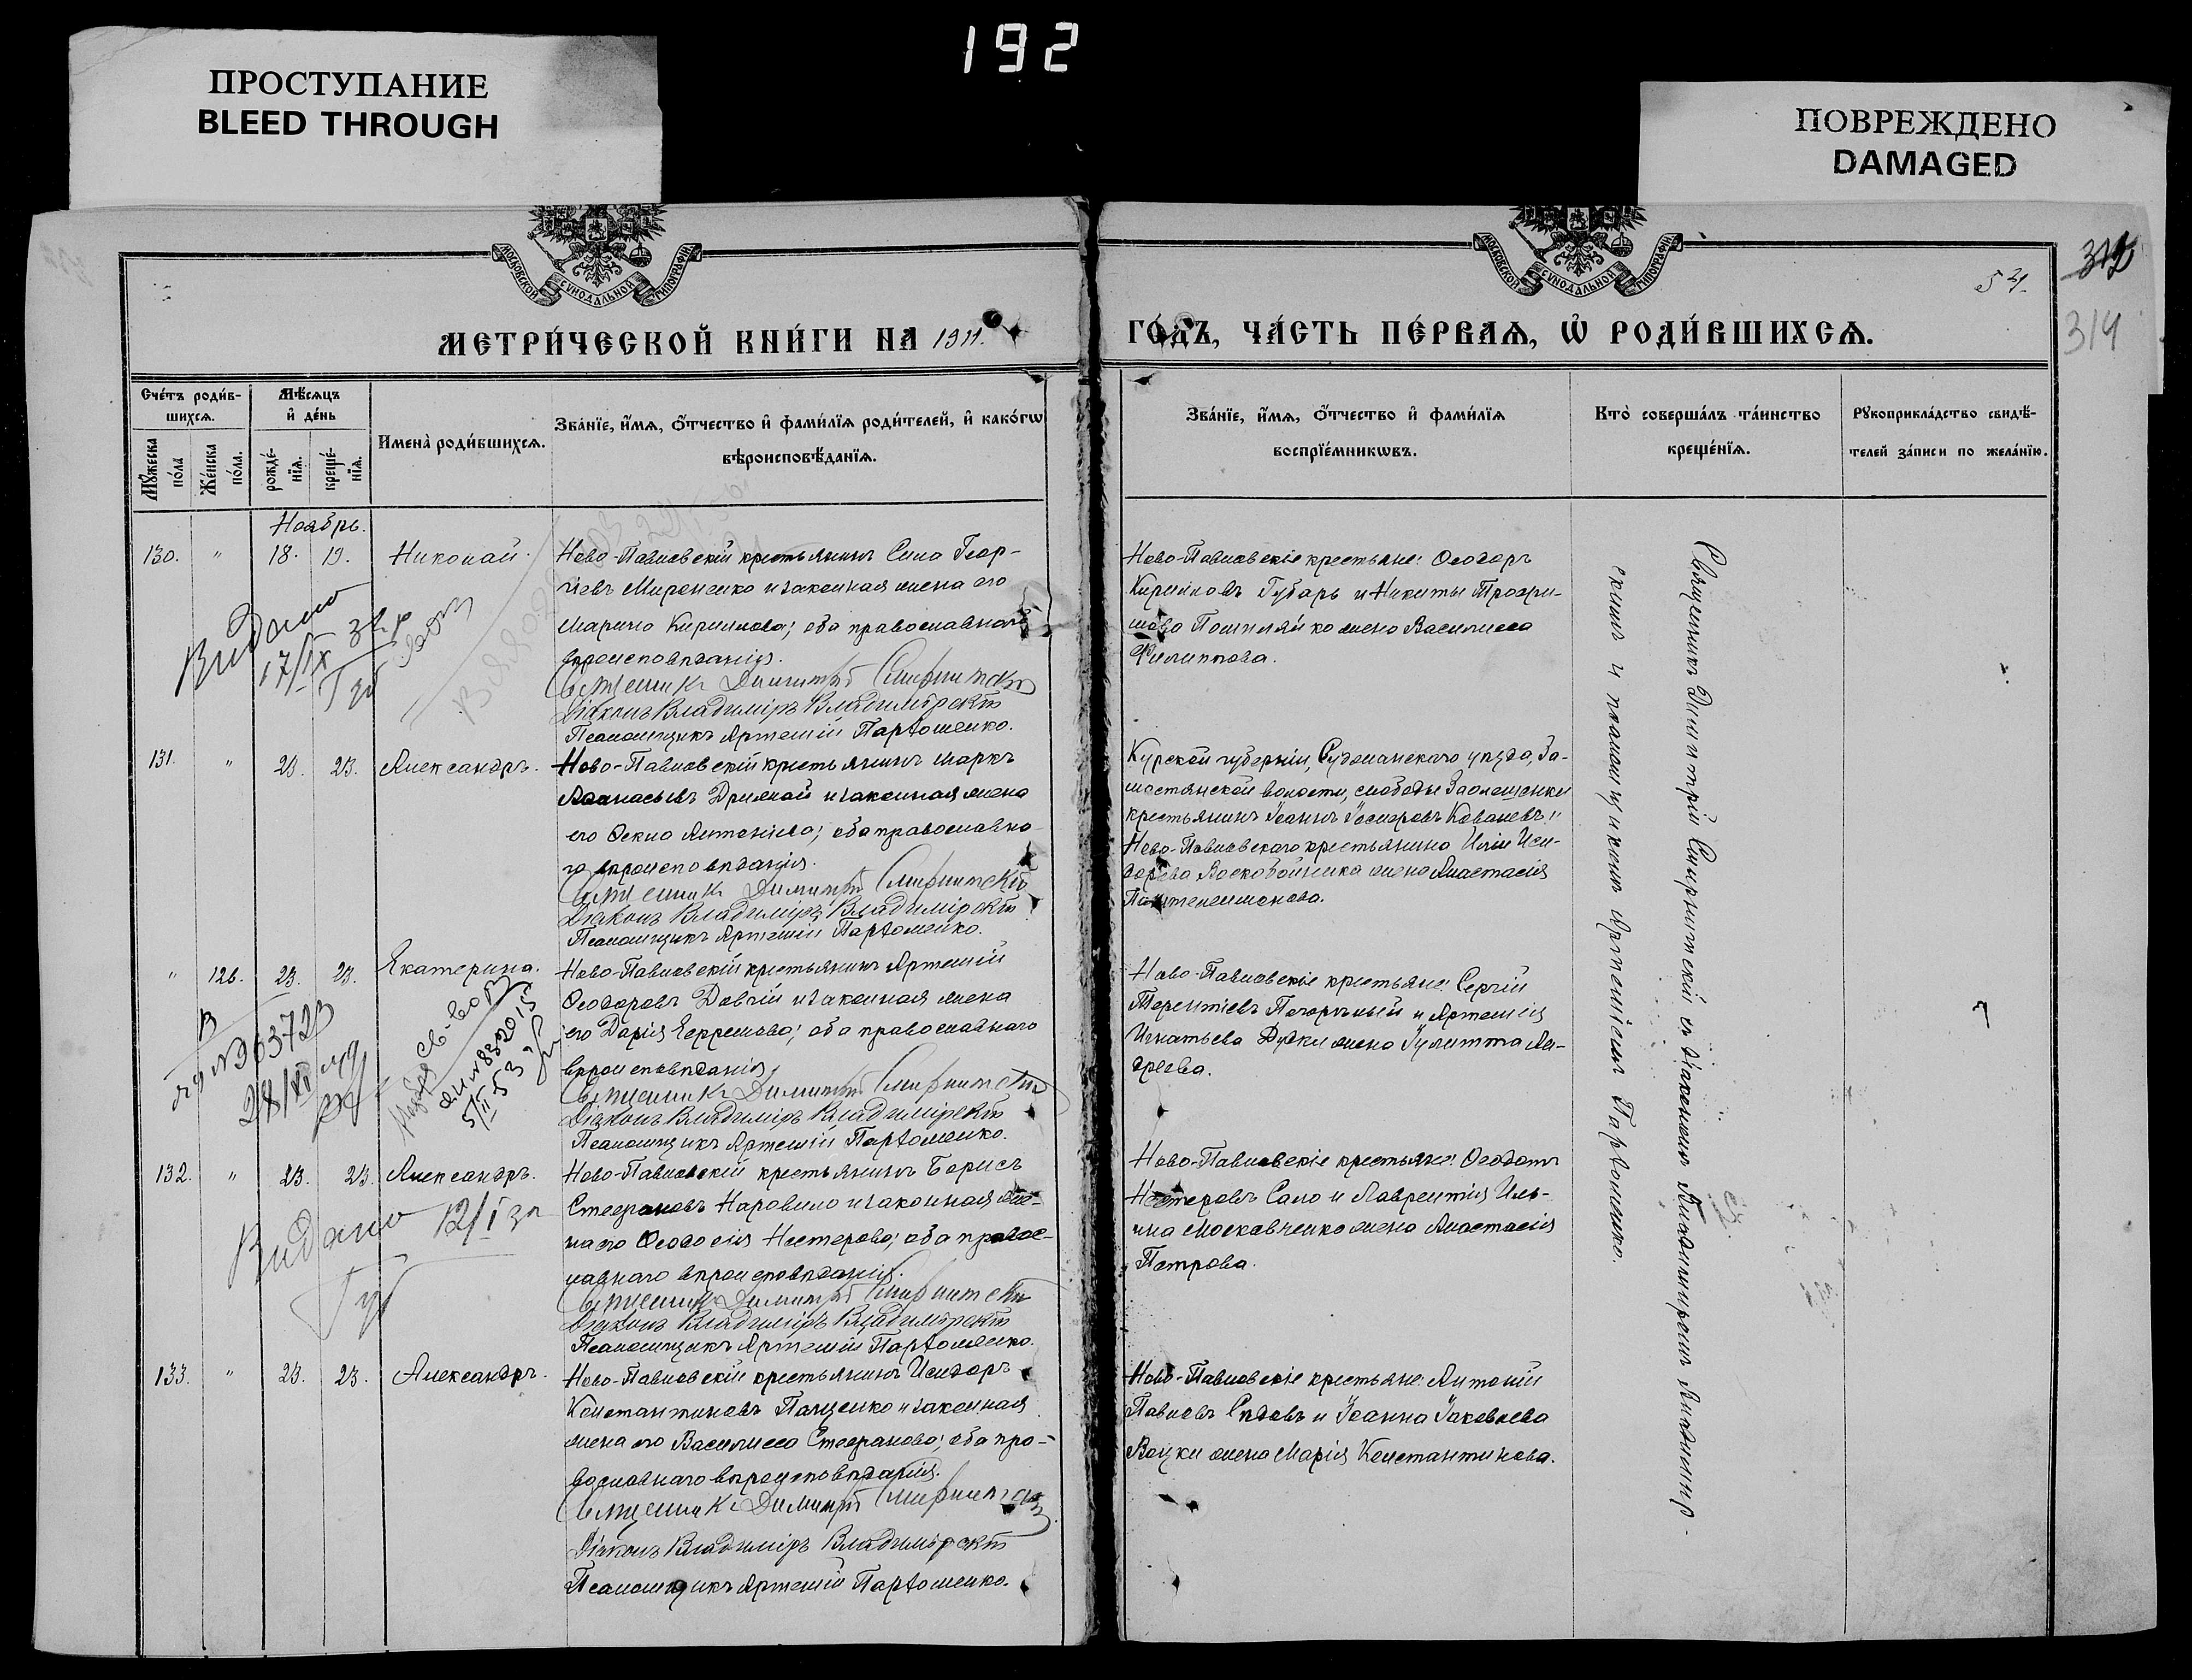 192
ПРОСТУПАНИЕ
BLEED THROUGH
ПОВРЕЖДЕНО
DAMAGED
МОСКОВСКОЙ СѴНОДАЛЬНОЙ ТИПОГРАФІИ
МОСКОВСКОЙ СѴНОДАЛЬНОЙ ТИПОГРАФІИ
314
МЕТРИ́ЧЕСКОЙ КНИ́ГИ НА 1911.
ГО́ДЪ, ЧА́СТЬ ПЕ́РВАѦ, Ѡ҆ РОДИ́ВШИХСѦ.
Сче́тъ роди́в-
шихсѧ.
Мꙋ́жеска
по́ла
Же́нска
по́ла.
Мѣ́сѧцъ
и҆ де́нь
рожде́-
нїѧ.
креще́-
нїѧ.
Имена̀ роди́вшихсѧ.
Зва́нїе, и҆́мѧ, о҆́тчество и҆ фами́лїѧ роди́телей, и҆ како́гѡ
вѣроисповѣ́данїѧ.
Зва́нїе, и҆́мѧ, о҆́тчество и҆ фами́лїѧ
воспрїе́мникѡвъ.
Кто̀ соверша́лъ та́инство
креще́нїѧ.
Рꙋкоприкла́дство свидѣ́-
телей за́писи по жела́нїю.
Ноябрь.
130. " 18. 19. Николай.
Ново-Павловскій крестьянинъ Сила Геор-
гіевъ Мироненко и законная жена его
Марина Кириллова; оба православнаго
вѣроисповѣданія.
Священникъ Димитрій Смирнитскій
Діаконъ Владиміръ Владимірскій
Псаломщикъ Артемій Парѳоменко.
Ново-Павловскіе крестьяне: Ѳеодоръ
Кирилловъ Губарь и Никиты Трофи-
мова жена Василисса
Филиппова.
Видано
17/IX
131. " 23. 23. Александръ.
Ново-Павловскій крестьянинъ Маркъ
Аѳанасьевъ Дрижай и законная жена
его Ѳекла Антоніева; оба православна-
го вѣроисповѣданія.
Священникъ Димитрій Смирнитскій
Діаконъ Владиміръ Владимірскій
Псаломщикъ Артемій Парѳоменко.
Курской губерніи, Суджанскаго уѣзда, За-
мостянской волости, слободы Заолешенки
крестьянинъ Іоаннъ Ковалевъ и
Ново-Павловскаго крестьянина Иліи Иси-
дорова Воскобойника жена Анастасія
Пантелеимонова.
" 126. 23. 23. Екатерина.
Ново-Павловскій крестьянинъ Артемій
Ѳеодоровъ Довгій и законная жена
его Дарія Ефремова; оба православнаго
вѣроисповѣданія.
Священникъ Димитрій Смирнитскій
Діаконъ Владиміръ Владимірскій
Псаломщикъ Артемій Парѳоменко.
Ново-Павловскіе крестьяне: Сергій
Терентіевъ Погорѣлый и Артемія
Игнатьева Дудки жена Іулитта Ан-
дреева.
132. " 23. 23. Александръ.
Ново-Павловскій крестьянинъ Борисъ
Стефановъ Наровило и законная же-
на его Ѳеодосія Нестерова; оба право-
славнаго вѣроисповѣданія.
Священникъ Димитрій Смирнитскій
Діаконъ Владиміръ Владимірскій
Псаломщикъ Артемій Парѳоменко.
Ново-Павловскіе крестьяне: Ѳеодотъ
Нестеровъ Сало и Лаврентія Иль-
ина Московченко жена Анастасія
Петрова.
Видано 12/I
133. " 23. 23. Александръ.
Ново-Павловскій крестьянинъ Исидоръ
Константиновъ Пащенко и законная
жена его Василисса Стефанова; оба пра-
вославнаго вѣроисповѣданія.
Священникъ Димитрій Смирнитскій
Діаконъ Владиміръ Владимірскій
Псаломщикъ Артемій Парѳоменко.
Ново-Павловскіе крестьяне: Антоній
Павловъ Сѣдовъ и Іоанна Іаковлева
Воцки жена Марія Константинова.
Священникъ Димитрій Смирнитскій съ діакономъ Владиміромъ Владимір-
скимъ и псаломщикомъ Артеміемъ Парѳоменко.